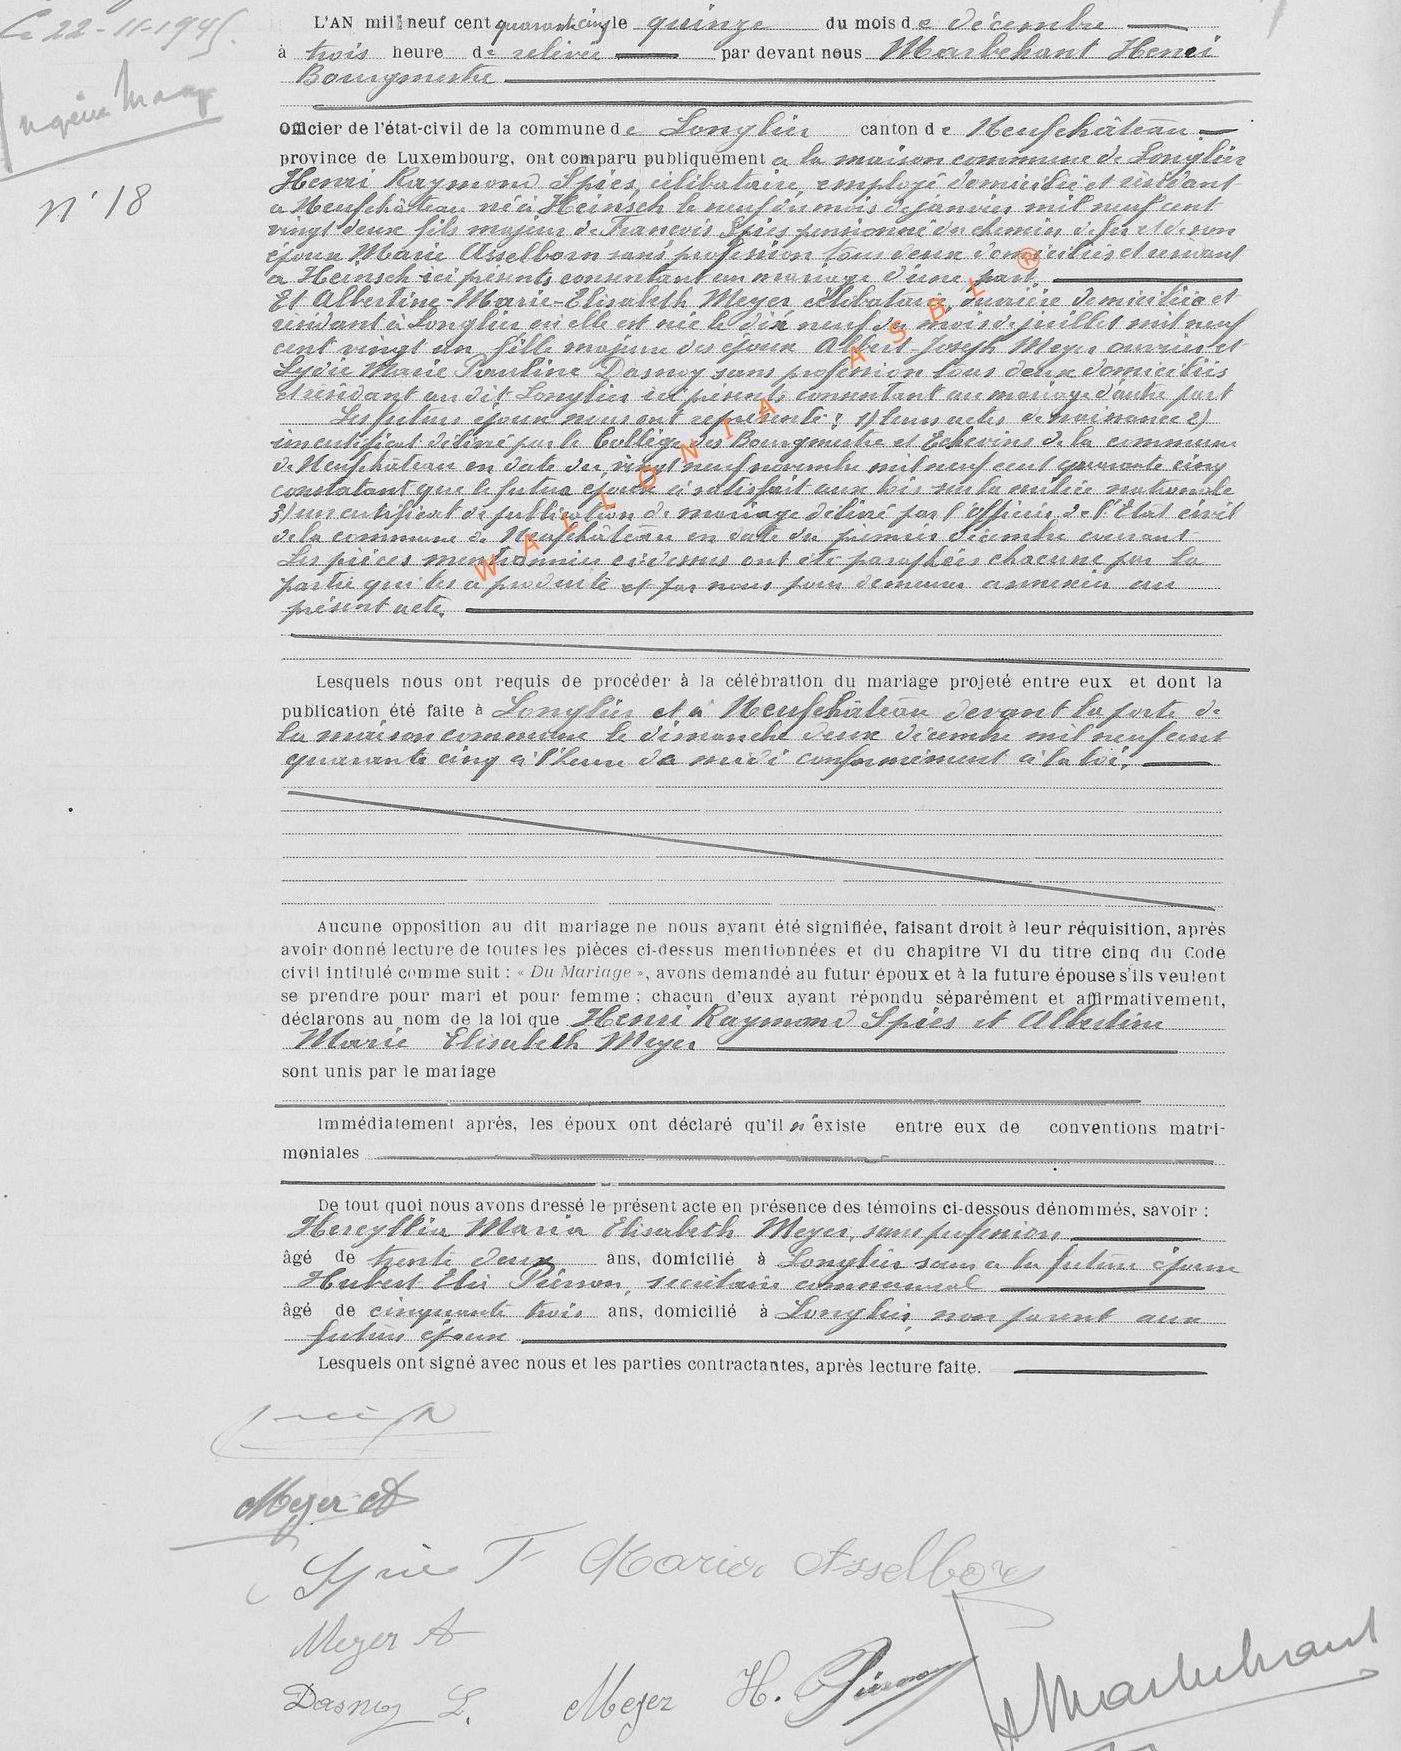 Le 22-11-1945.
n° 18
L'AN mil neuf cent quarante cinq le quinze du mois de décembre
à trois heure de relevée par devant nous Marbehant Henri
Bourgmestre
Officier de l'état-civil de la commune de Longlier canton de Neufchâteau
province de Luxembourg, ont comparu publiquement a la maison commune de Longlier
Henri Raymond Spies, célibataire, employé domicilié et résidant
a Neufchâteau né à Heinsch le neuf du mois de janvier mil neuf cent
vingt deux fils majeur de François Spies pensionné du chemin de fer et de son
épouse Marie Asselborn sans profession tous deux domiciliés et résidant
a Heinsch ici présents consentant au mariage d'une part.
Et Albertine-Marie-Elisabeth Meyer célibataire, ouvrière domiciliée et
résidant à Longlier où elle est née le dix neuf du mois de juillet mil neuf
cent vingt un fille majeure des époux Albert-Joseph Meyer ouvrier et
Lydie Marie Pauline Dasnoy sans profession tous deux domiciliés
et résidant au dit Longlier ici présents consentant au mariage d'autre part
Les futurs époux nous ont représenté : 1) leurs actes de naissance 2)
un certificat délivré par le Collège des Bourgmestre et Echevins de la commune
de Neufchâteau en date du vingt neuf novembre mil neuf cent quarante cinq
constatant que le futur époux a satisfait aux lois sur la milice nationale
3) un certificat de publication de mariage délivré par l'Officier de l'Etat civil
de la commune de Neufchâteau en date du premier décembre courant
Les pièces mentionnées ci-dessus ont été paraphées chacune par la
partie qui les a produite et par nous pour demeurer annexées au
présent acte.
WALLONIA ASBL ®
Lesquels nous ont requis de procéder à la célébration du mariage projeté entre eux et dont la
publication été faite à Longlier et à Neufchâteau devant la porte de
la maison commune le dimanche deux décembre mil neuf cent
quarante cinq à l'heure de midi conformément à la loi.
Aucune opposition au dit mariage ne nous ayant été signifiée, faisant droit à leur réquisition, après
avoir donné lecture de toutes les pièces ci-dessus mentionnées et du chapitre VI du titre cinq du Code
civil intitulé comme suit : « Du Mariage », avons demandé au futur époux et à la future épouse s'ils veulent
se prendre pour mari et pour femme ; chacun d'eux ayant répondu séparément et affirmativement,
déclarons au nom de la loi que Henri Raymond Spies et Albertine
Marie Elisabeth Meyer
sont unis par le mariage
Immédiatement après, les époux ont déclaré qu'il n'existe entre eux de conventions matri-
moniales
De tout quoi nous avons dressé le présent acte en présence des témoins ci-dessous dénommés, savoir :
Maria Elisabeth Meyer, sans profession
âgé de trente deux ans, domicilié à Longlier sœur a la future épouse
Hubert Elie Pierson, secrétaire communal
âgé de cinquante trois ans, domicilié à Longlier, non parent aux
futurs époux
Lesquels ont signé avec nous et les parties contractantes, après lecture faite.
Meyer A
Spies F Maria Asselborn
Meyer A
Dasnoy L. Meyer H. Pierson
Marbehant